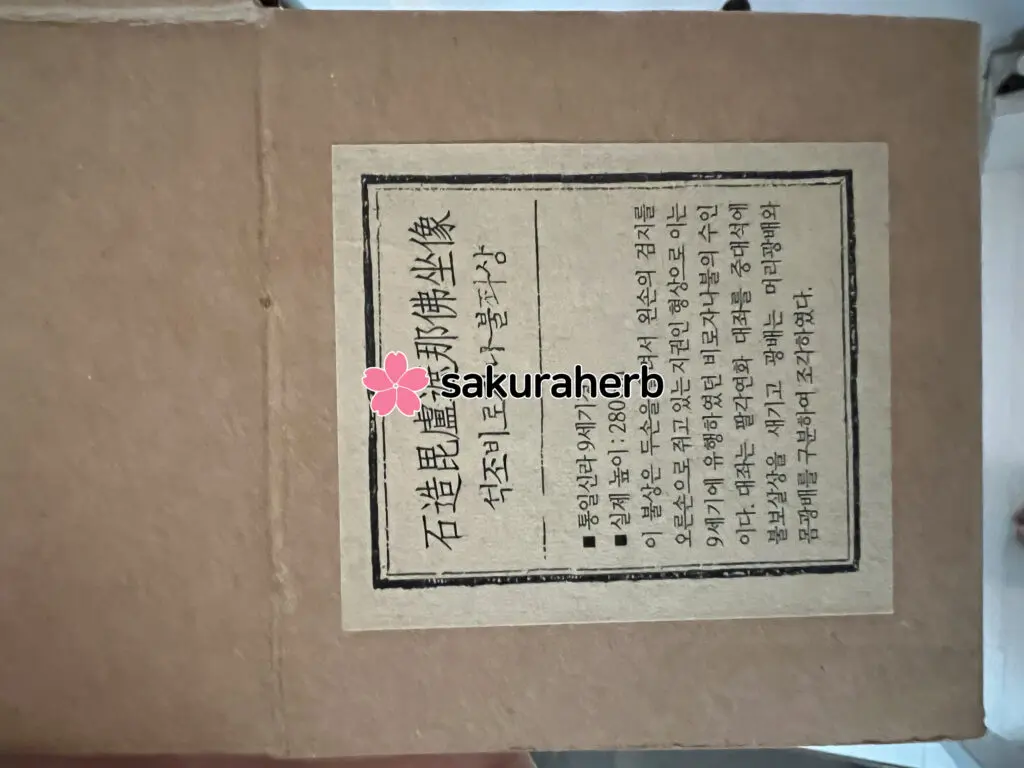 石造毘盧那佛坐像
석조비로나불좌상
■ 통일신라 9세기
■ 실제 높이 : 280
이 불상은 두손을 서 왼손의 검지를
오른손으로 쥐고 있는 지권인 형상으로 이는
9세기에 유행하였던 비로자나불의 수인
이다. 대좌는 팔각연화 대좌를 중대석에
불보살상을 새기고 광배는 머리광배와
몸광배를 구분하여 조각하였다.
sakuraherb